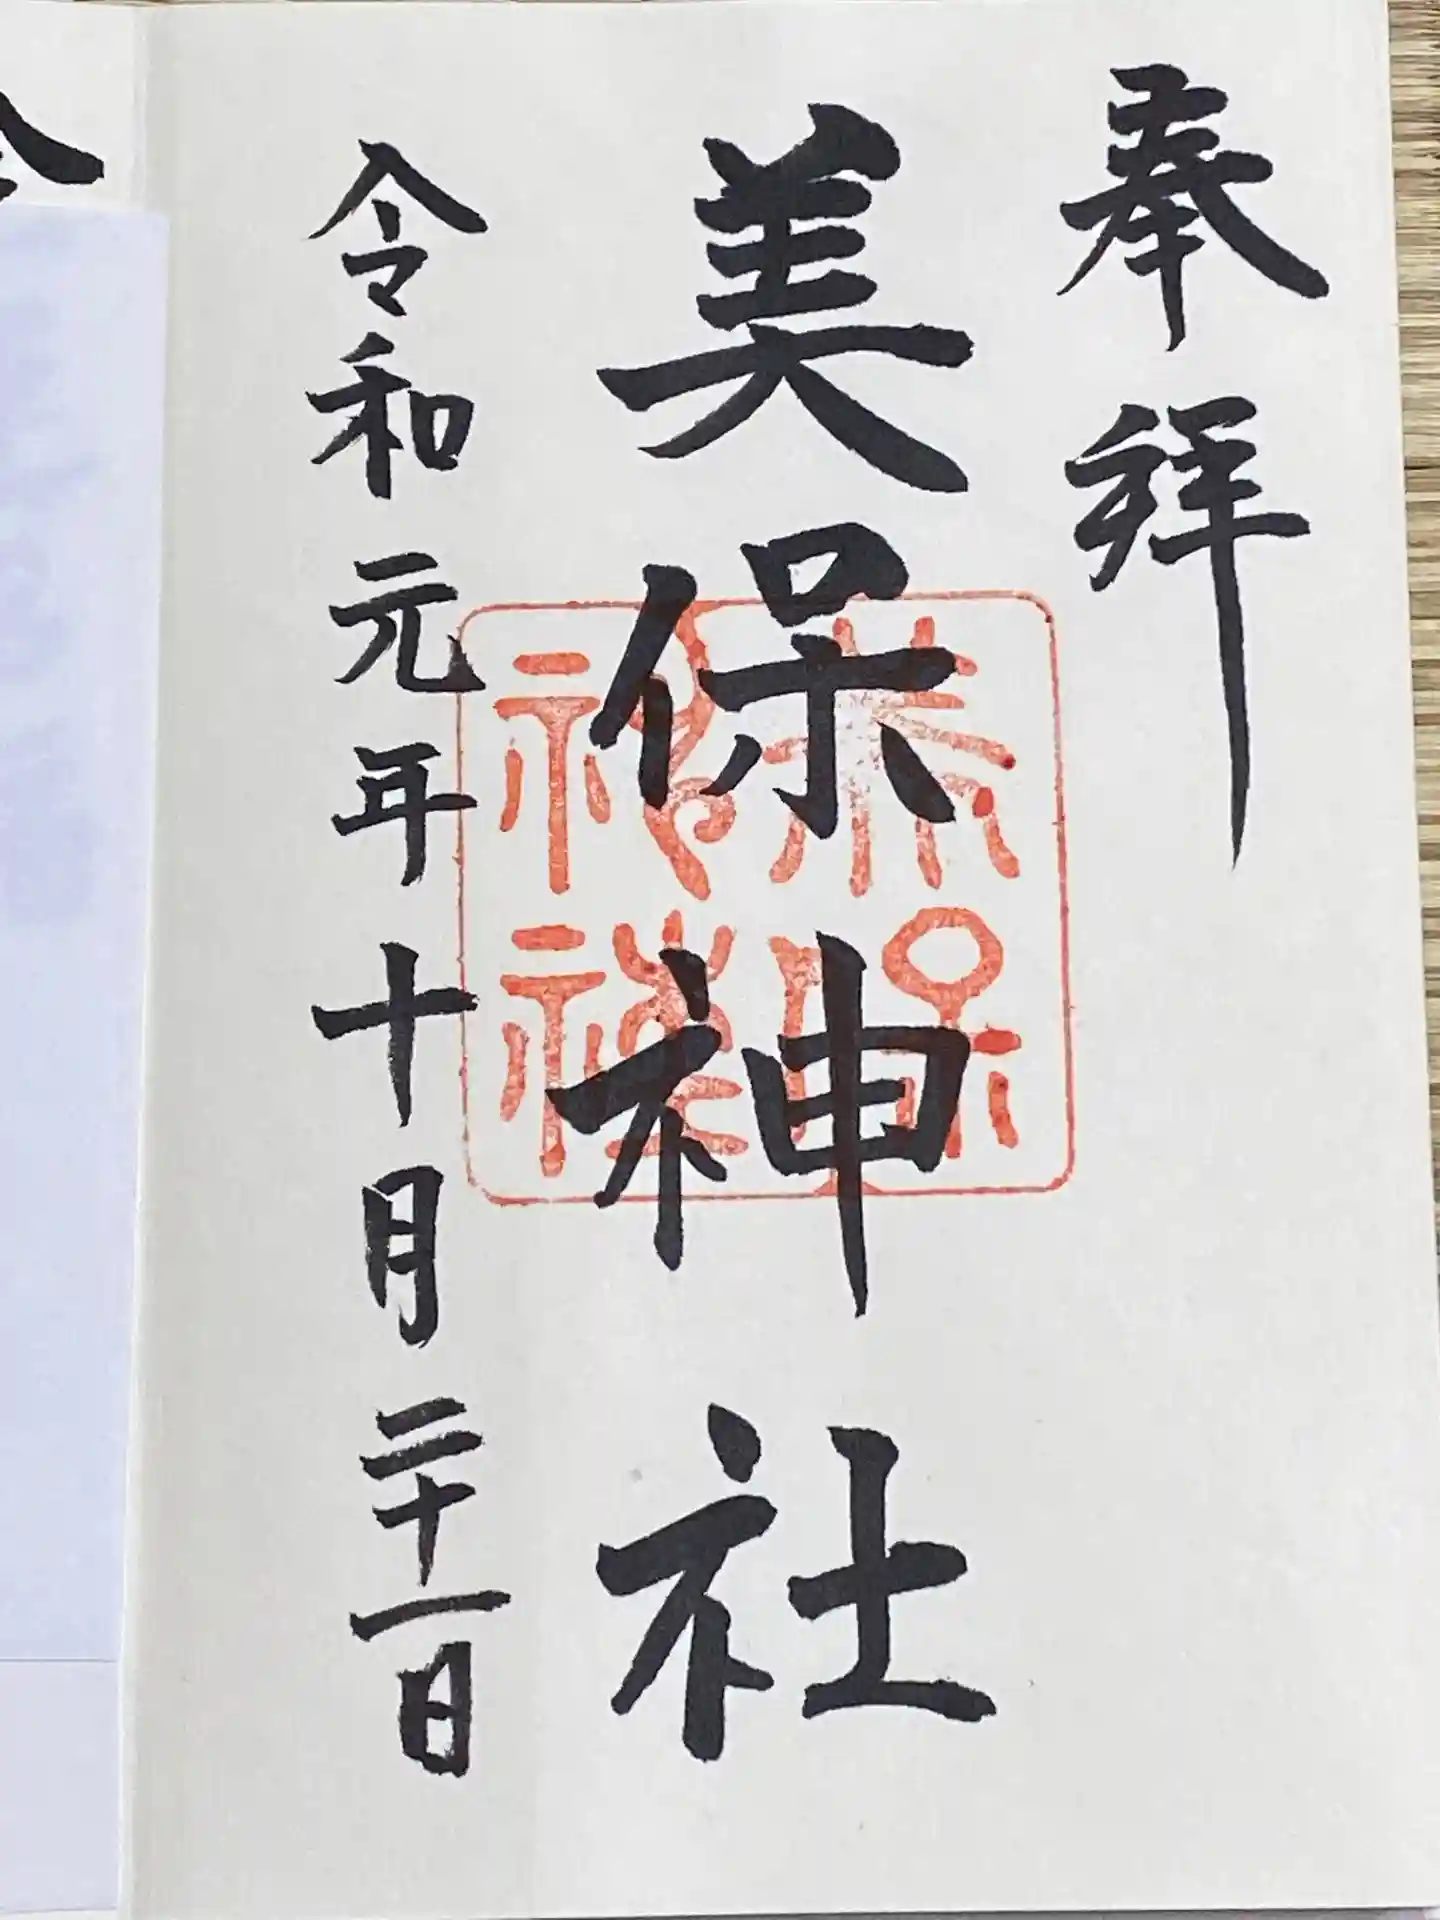 奉拝
美保神社
美保
神社
令和元年十月二十一日
令